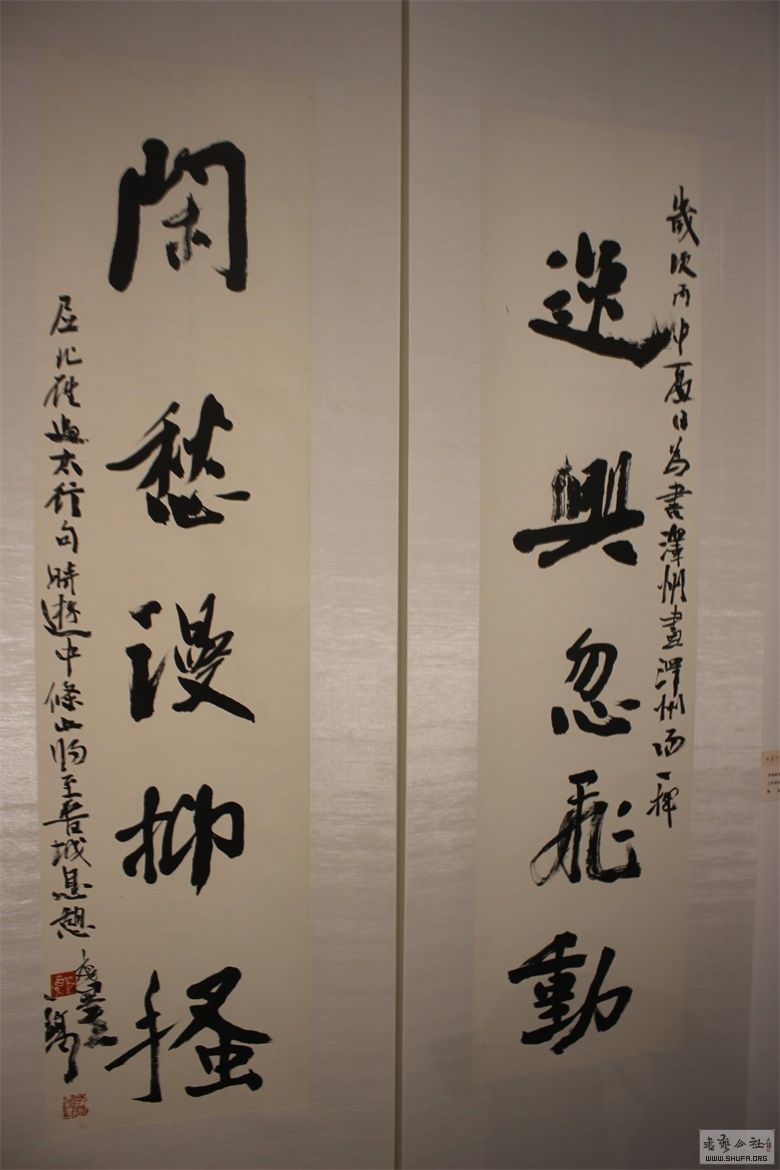 歲次丙申夏日為書澤州畫澤州而一揮
逸興忽飛動
閑愁漫抑搔
屈北雄太行句時遊中條山歸至晉城息憩
書藝公社
WWW.SHUFA.ORG